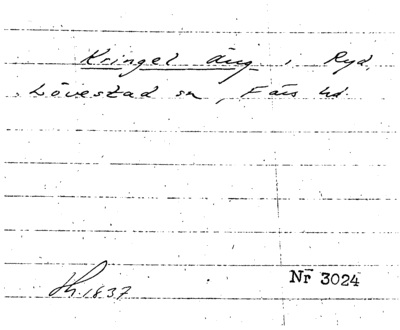 Kringel äng i Ryd,
Lövestad sn, Färs hd.
Nr 3024
Lh. 1837